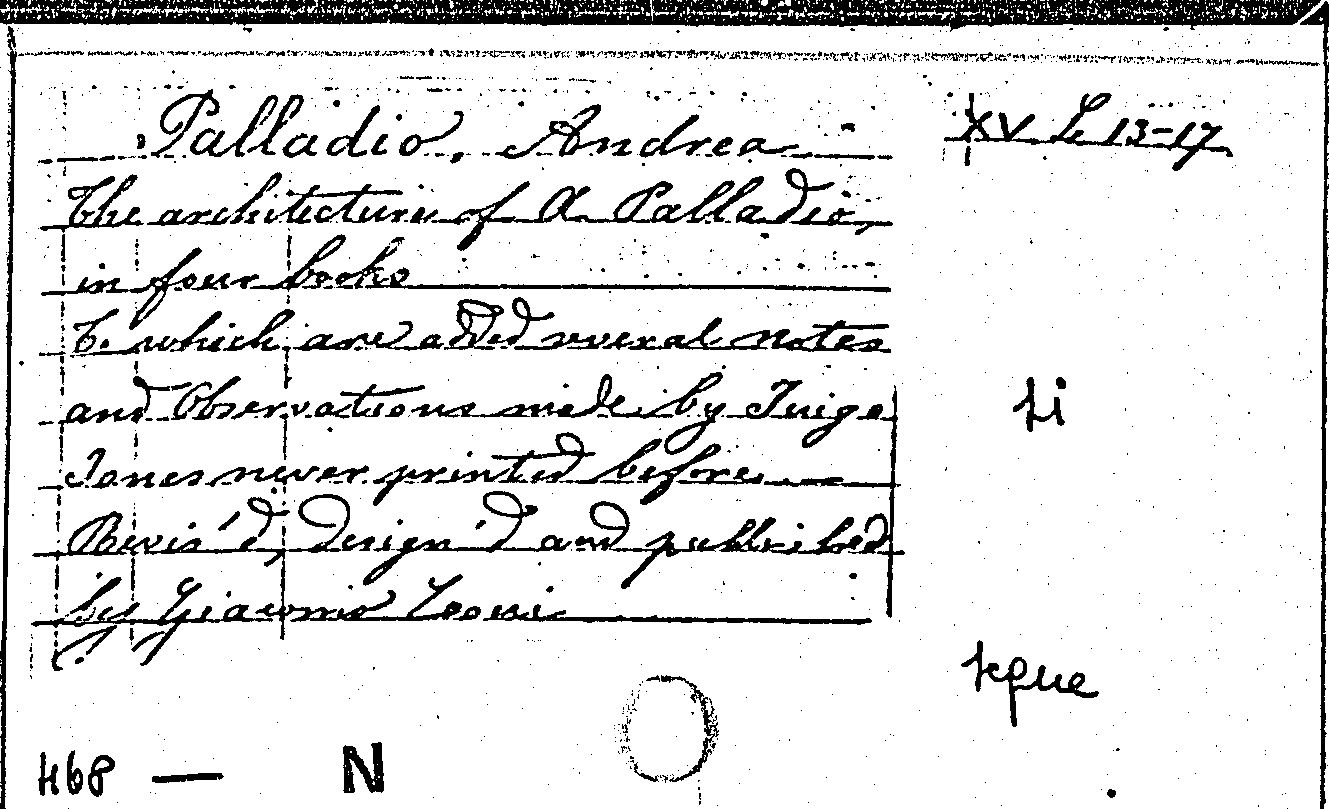 Palladio, Andrea
XV L 13-17
The architecture of A. Palladio,
in four books
To which are added several notes
and Observations made by Inigo
Jones never printed before. —
Revis'd, design'd and published
by Giacomo Leoni
468 — N